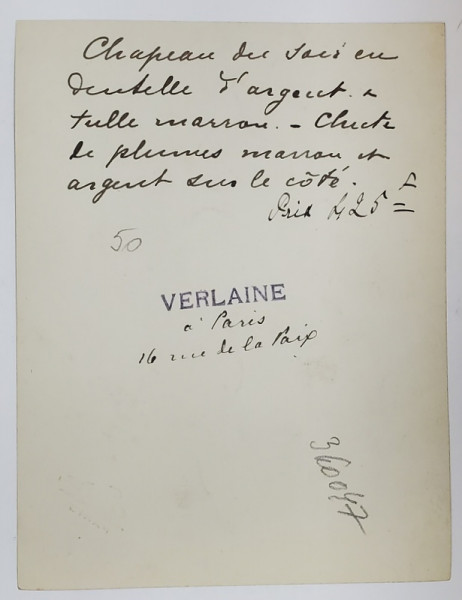 Chapeau du soir en
dentelle d'argent &
tulle marron. - Chute
de plumes marron et
argent sur le côté.
Prix 425 F
50
VERLAINE
à Paris
16 rue de la Paix
360047